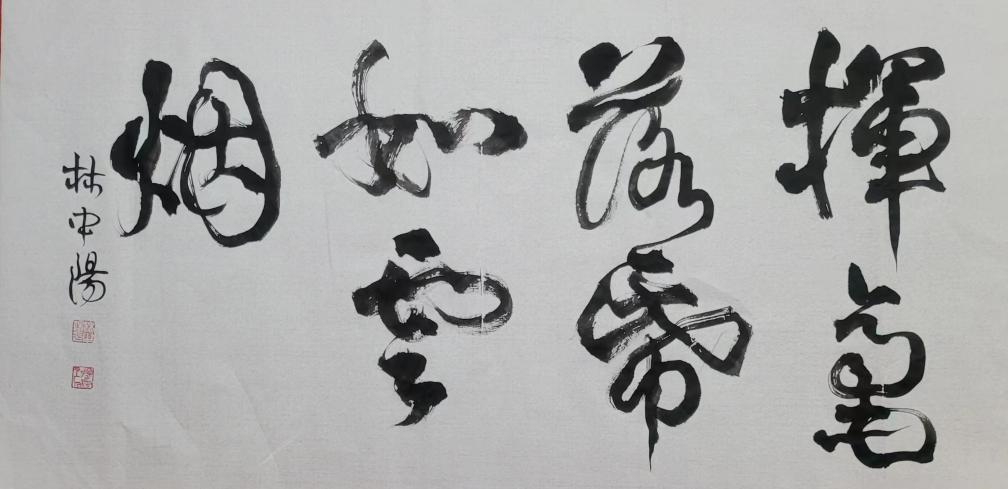 揮毫
落帋
如雲
烟
林中陽